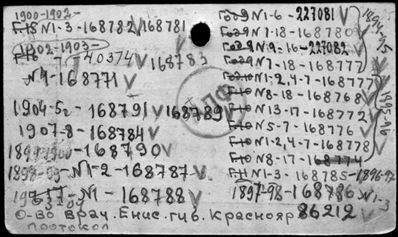 1900-1902-
Г-15 N1-3-168782 V 168781 V
1902-1903-
Г-16 -7-40374 V 168783 V
N4-168771 V
1904-5г-168791 V 168789 V
1907-8-168784 V
1899-1900-168790 V
1898-99-N1-2-168787 V
N1-168788 V
О-во Врач. Енис. губ. Красноярск
протокол
N1-6-227081 V
N7-18-168780 V
N9-16-227082 V
N7-18-168777 V
N1-2,4-7-168777 V
N8-18-168768 V
N13-17-168772 V
N5-7-168776 V
N1-2,4-7-168778 V
N8-17-168774 V
N1-3-168785-1896-97
1897-98-168786 N1-3
86212 V
1894-95
1895-96